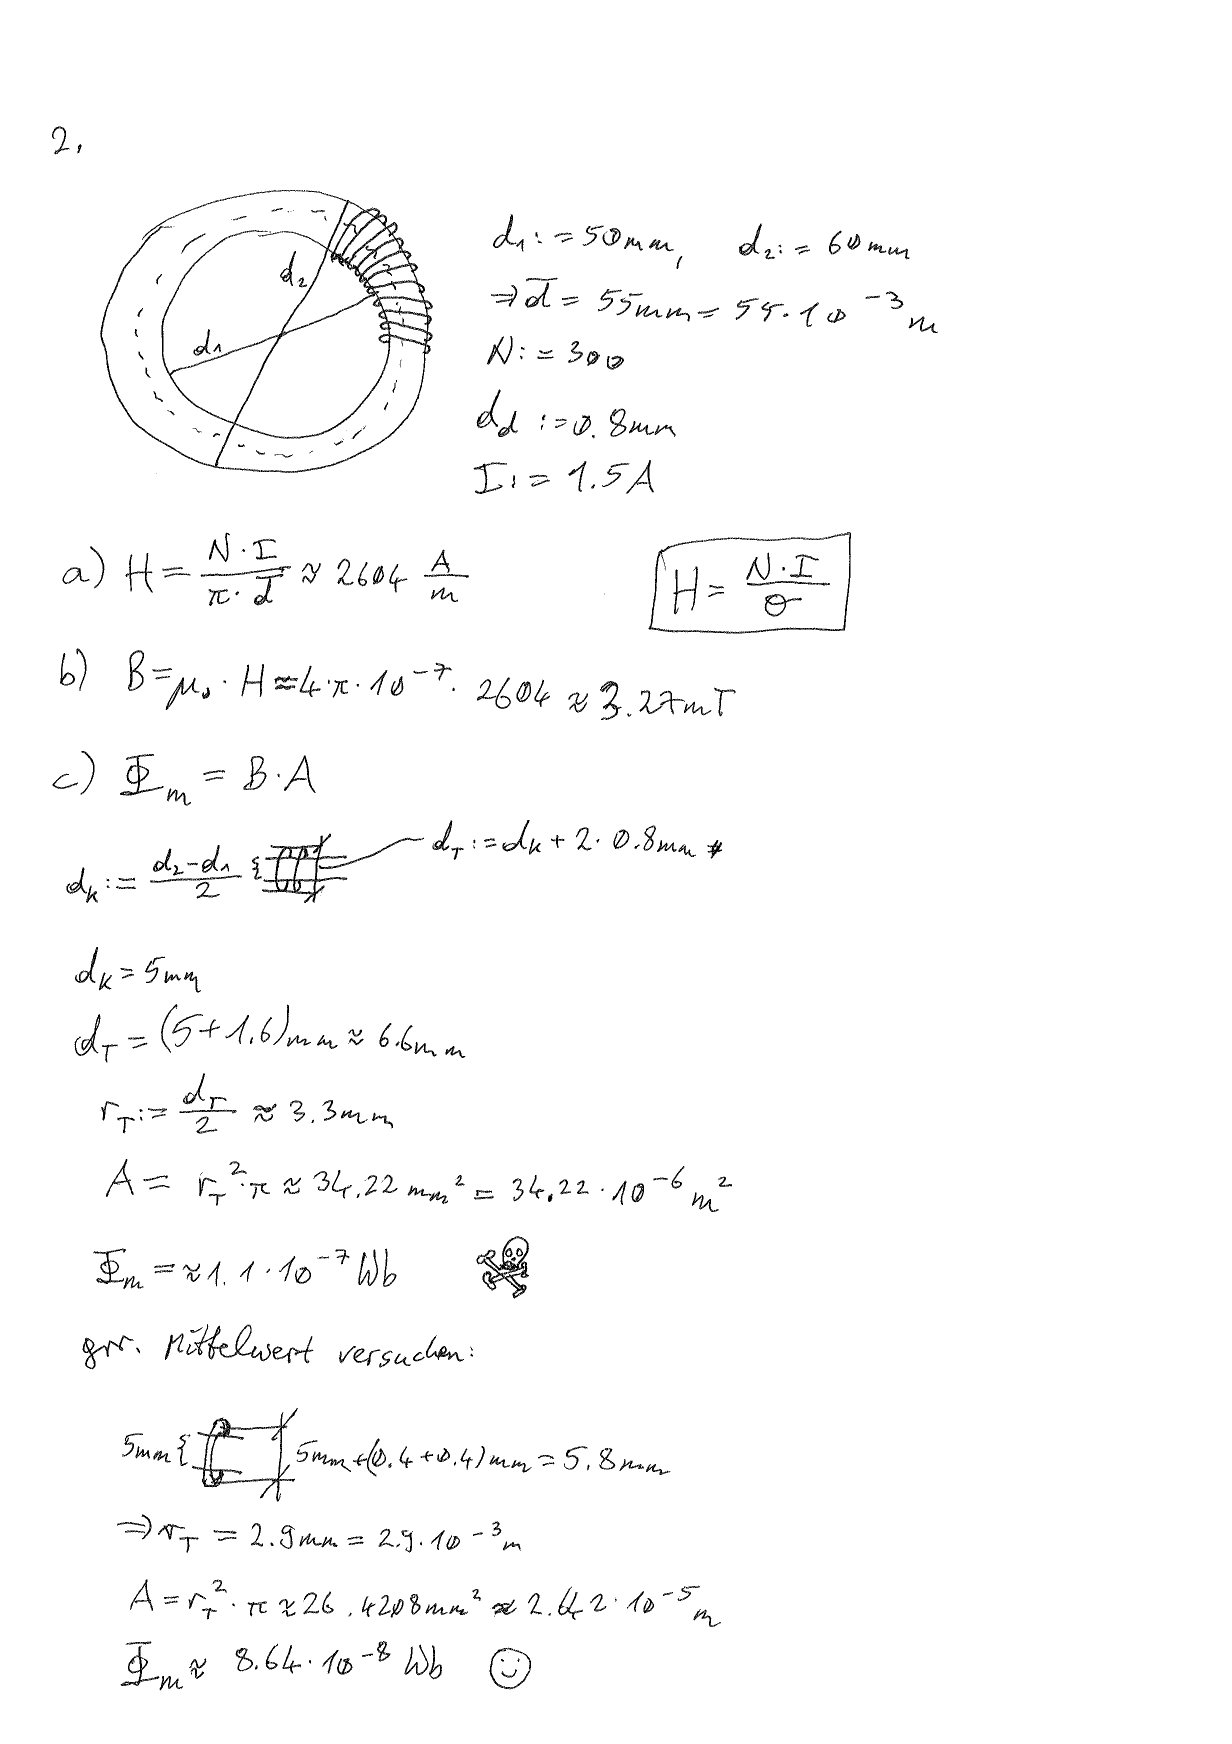 2.
d₁ := 50mm, d₂ := 60mm
⇒ d̅ = 55mm = 55·10⁻³ m
N := 300
d_d := 0.8mm
I := 1.5A
d₂
d₁
a) H = (N·I)/(π·d̅) ≈ 2604 A/m
H = (N·I)/⌀
b) B = μ₀·H ≈ 4·π·10⁻⁷·2604 ≈ 3.27mT
c) Φ_m = B·A
d_K := (d₂-d₁)/2 { d_T := d_K + 2·0.8mm
d_K = 5mm
d_T = (5+1.6)mm ≈ 6.6mm
r_T := d_T/2 ≈ 3.3mm
A = r_T²·π ≈ 34.22mm² = 34.22·10⁻⁶ m²
Φ_m = ≈ 1.1·10⁻⁷ Wb
grr. Mittelwert versuchen:
5mm { 5mm+(0.4+0.4)mm = 5.8mm
⇒ r_T = 2.9mm = 2.9·10⁻³ m
A = r_T²·π ≈ 26.4208mm² ≈ 2.642·10⁻⁵ m
Φ_m ≈ 8.64·10⁻⁸ Wb